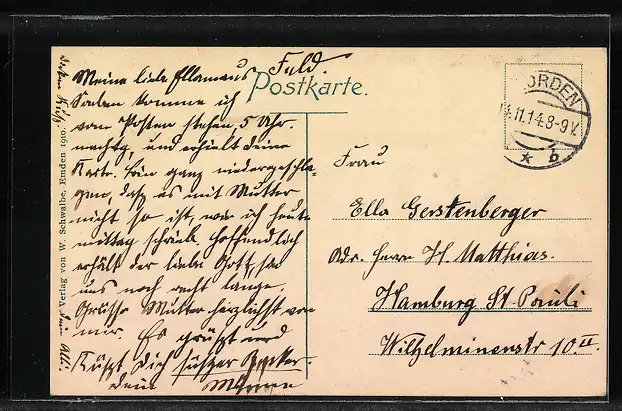 Feld
Postkarte.
Meine liebe
Soeben komme ich
vom Posten stehen, 5 Uhr.
nachtg, und erhielt deine
Karte. Bin ganz niedergeschla-
gen, daß es mit Mutter
nicht so ist, wie ich heute
mittag schrieb. Hoffendlich
erhält der liebe Gott sie
uns noch recht lange.
Grüsse Mutter herzlichst von
mir. Es grüßt und
Küßt Dich
Dein
NORDEN
11.14.8-9V.
* b
Frau
Ella Gerstenberger
Adr. Herrn H. Matthias.
Hamburg St. Pauli
Wilhelminenstr 10 II.
Verlag von W. Schwalbe, Emden 1910.